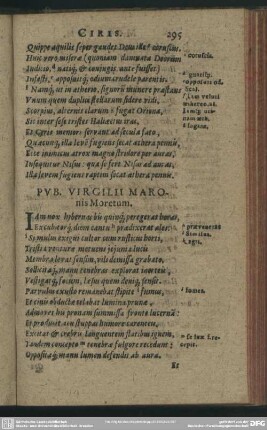 CIRIS. 295
Quippe aquilis semper gaudet Deus ille coruscus.
Huic vero miserae (quoniam damnata Deorum
Iudicio, natiq; & coniugis ante fuisset)
Infesti, apposuit q; odium crudele parentis.
Namq; ut in aetherio, signorum munere praestans
Unum quem duplici stellatum sidere vidi,
Scorpius, alternis clarum fugat Oriona,
Sic inter sese tristes Haliaeetus iras,
Et Ciris memori servant ad secula fato.
Quacunq; illa levem fugiens secat aethera pennis,
Ecce inimicus atrox magno stridore per auras,
Insequitur Nisus: qua se fert Nisus ad auras,
Illa levem fugiens raptim secat aethera pennis.
PUB. VIRGILII MARO-
nis Moretum.
IAm nox hybernas bis quinq; peregerat horas,
Excubitorq; diem cantu praedixerat ales:
Simulus exigui cultor cum rusticus horti,
Tristia venturae metuens jejunia lucis
Membra levat sensim, vili demissa grabato,
Sollicitaq; manu tenebras explorat inertes,
Vestigatq; focum, laesus quem deniq; sensit.
Parvulus exusto remanebat stipite fumus,
Et cinis obductae celabat lumina prunae,
Admovet his pronam summissa fronte lucernam:
Et producit acu stuppas humore carentes,
Excitat & crebris languentem flatibus ignem.
Tandem concepto tenebrae fulgore recedunt:
Oppositaq; manu lumen defendit ab aura.
Et